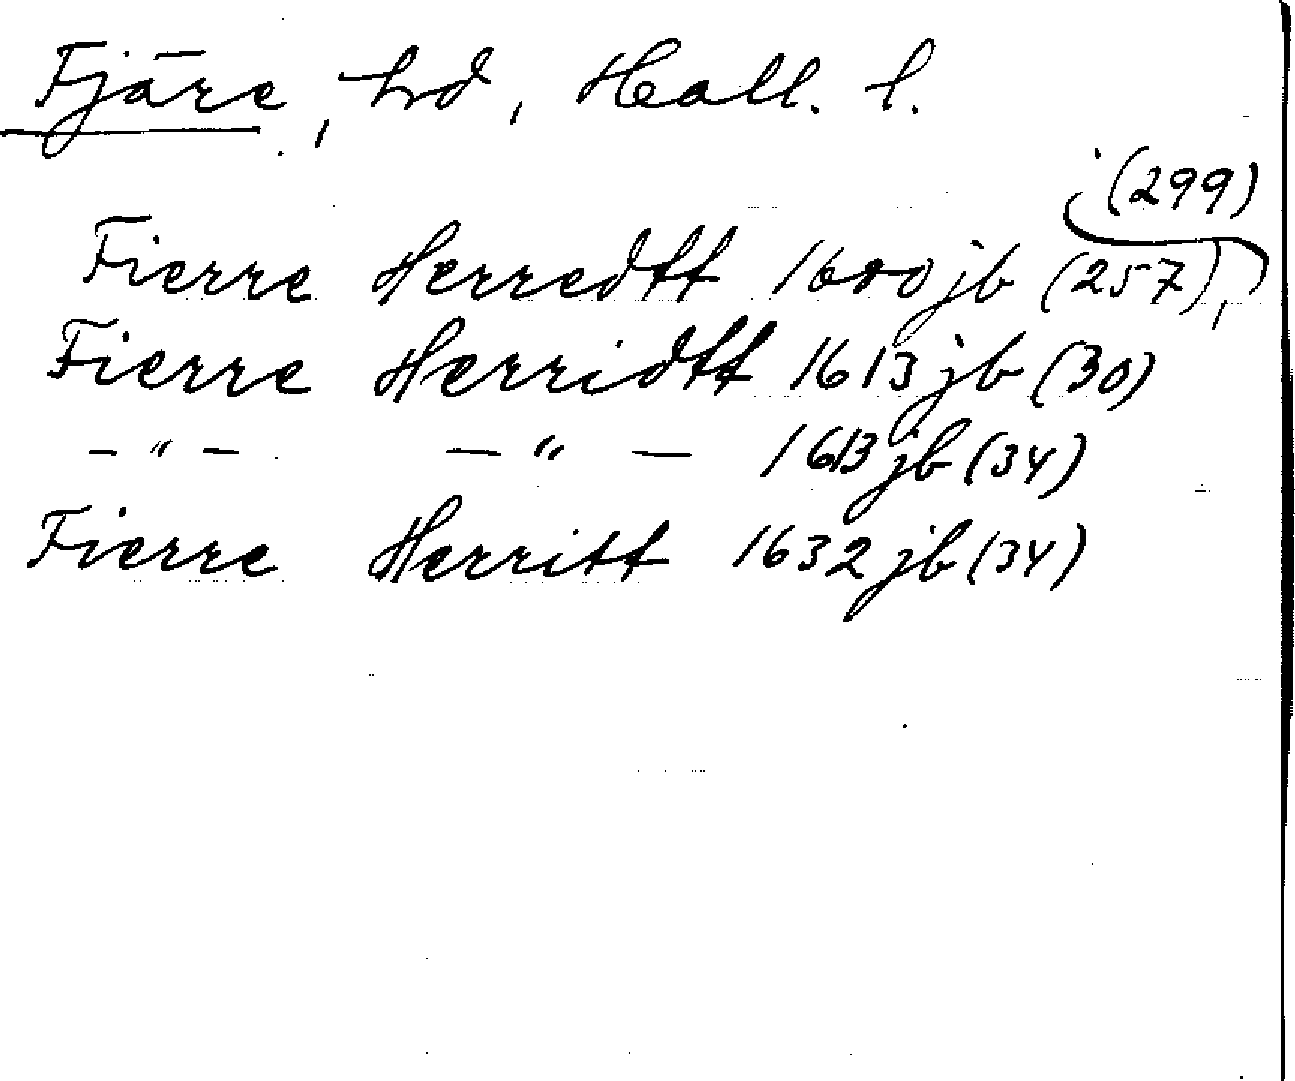 Fjäre, hd, Hall. l.
Fierre Herredtt 1600 jb (257), (299)
Fierre Herridtt 1613 jb (30)
– " – – " – 1613 jb (34)
Fierre Herritt 1632 jb (34)